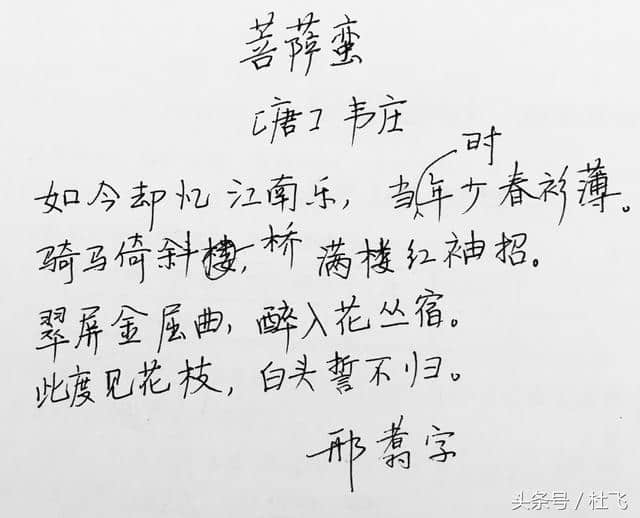 菩萨蛮
[唐] 韦庄
如今却忆江南乐，当时年少春衫薄。
骑马倚斜桥，满楼红袖招。
翠屏金屈曲，醉入花丛宿。
此度见花枝，白头誓不归。
邢翥字
头条号 / 杜飞